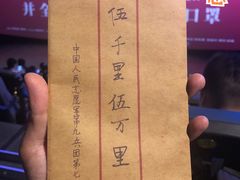 伍千里伍万里
中国人民志愿军第九兵团第七